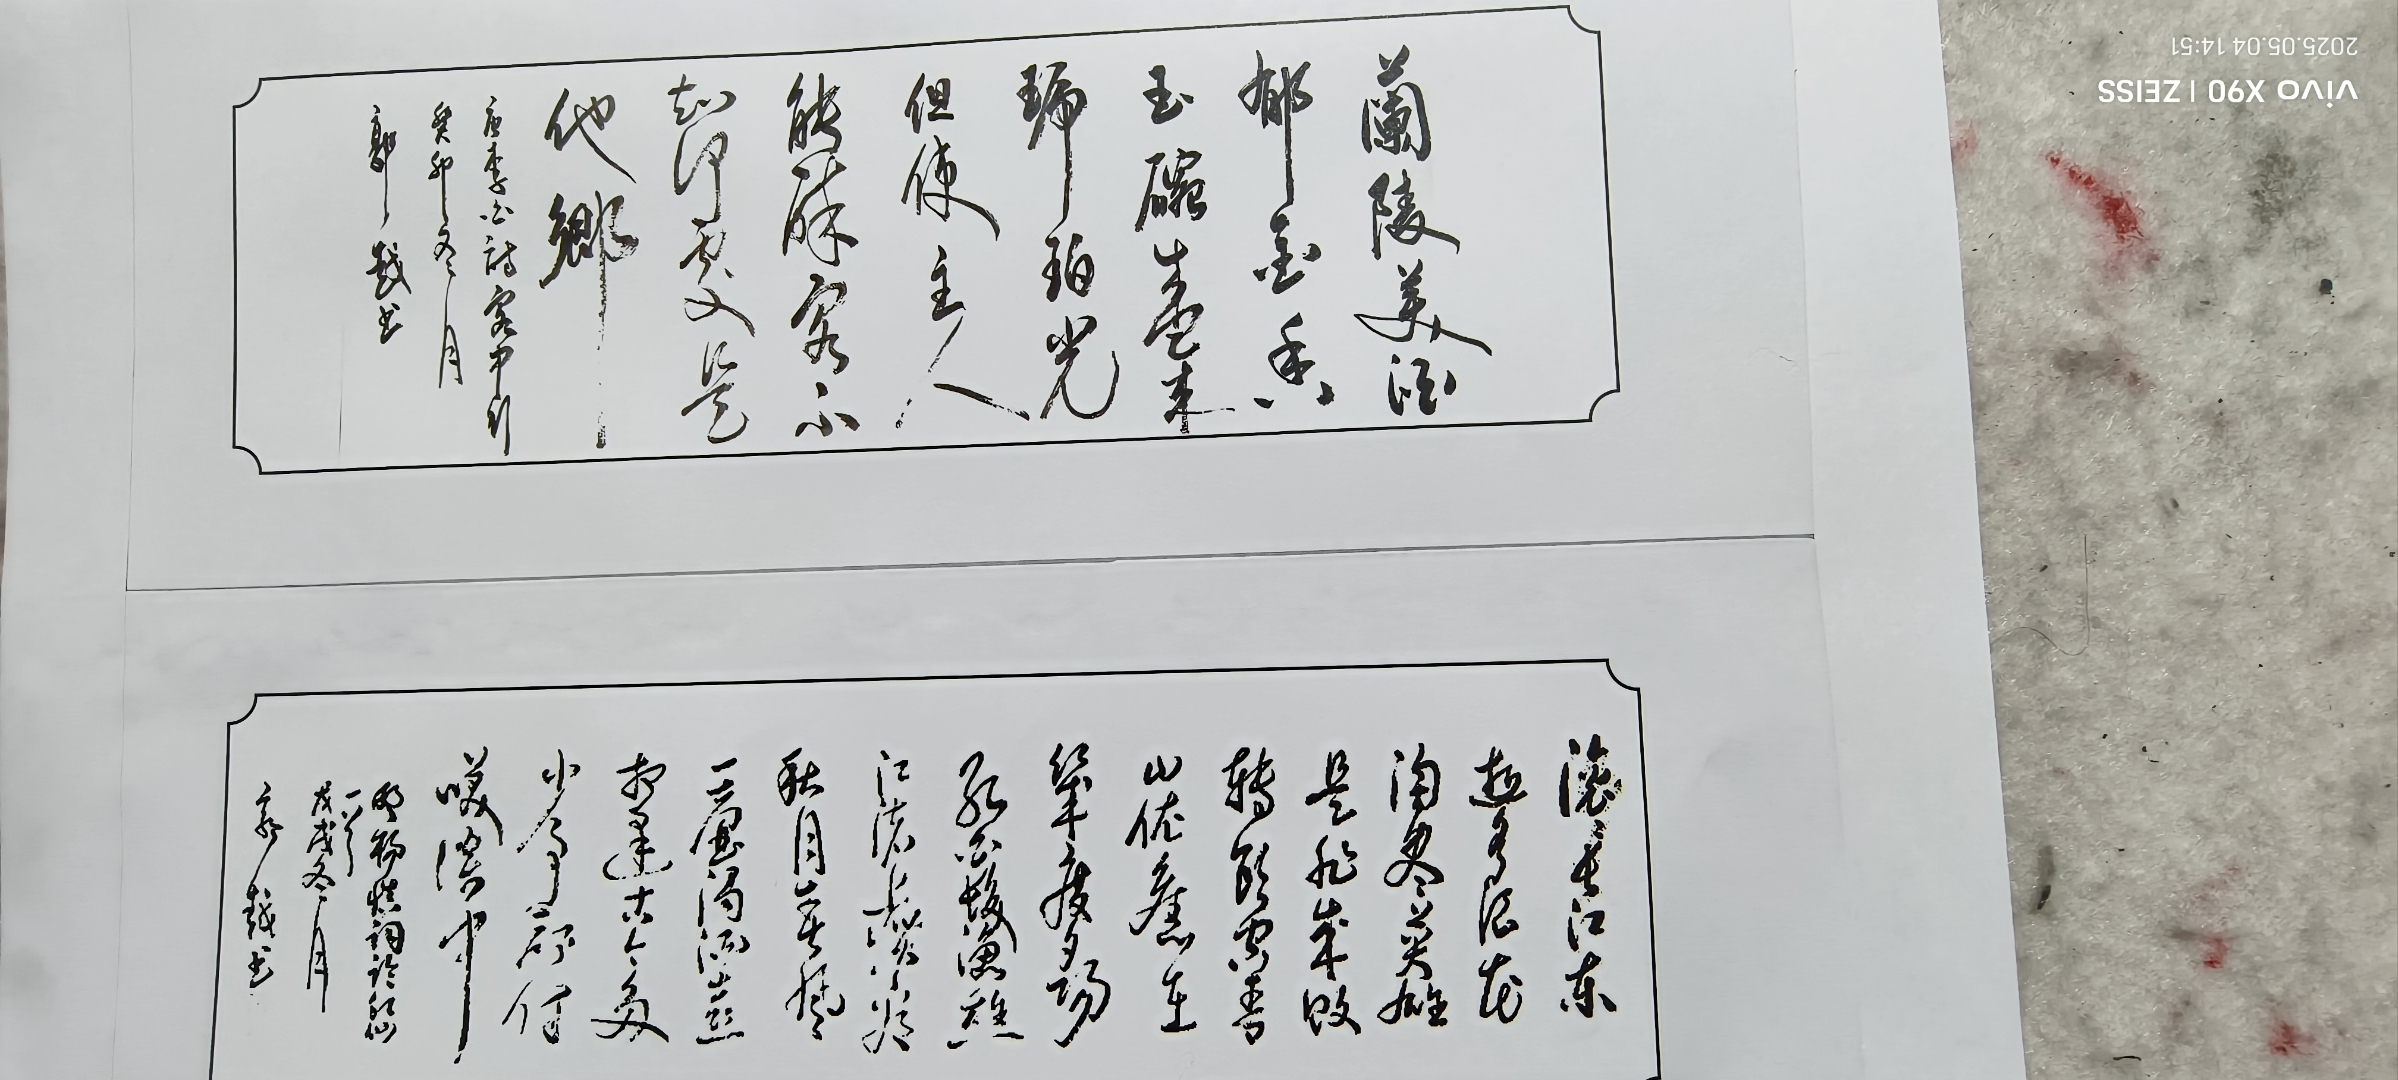 蘭陵美酒
郁金香
玉碗盛来
琥珀光
但使主人
能醉客不
知何處是
他鄉
唐李白詩客中行
癸卯冬月
郭越书
滚々長江東
逝水浪花
淘尽英雄
是非成败
轉頭空青
山依舊在
幾度夕陽
红白髮漁樵
江渚上惯看
秋月春風
一壶濁酒喜
相逢古今多
少事都付
笑談中
明楊慎詞臨江仙
一首
戊戌冬月
郭越书
vivo X90 | ZEISS
2025.05.04 14:51